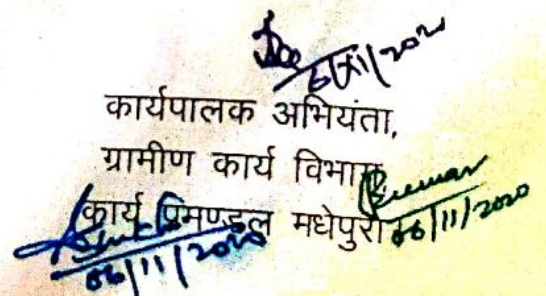 6/11/2020
कार्यपालक अभियंता,
ग्रामीण कार्य विभाग
कार्य प्रमण्डल मधेपुरा
06/11/2020
06/11/2020